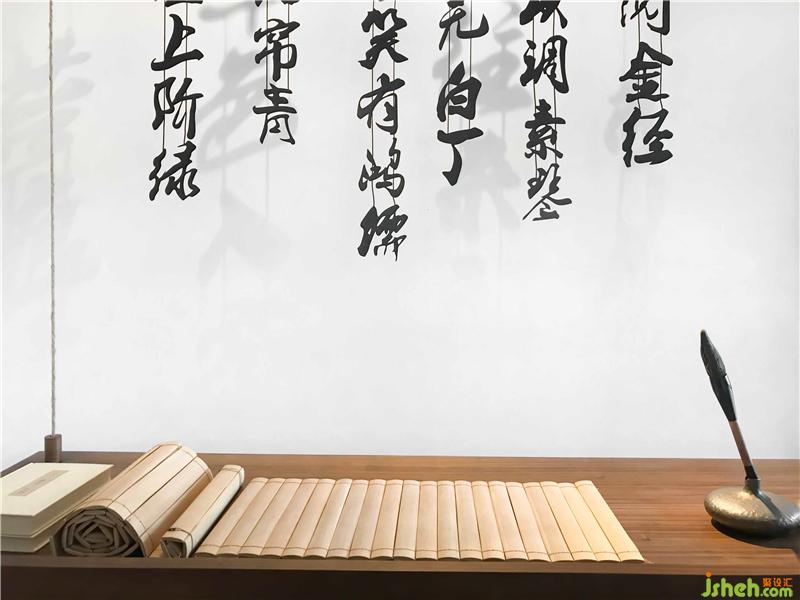 上阶绿
帘青
笑有鸿儒
无白丁
调素琴
阅金经
jsheh.com
聚设汇